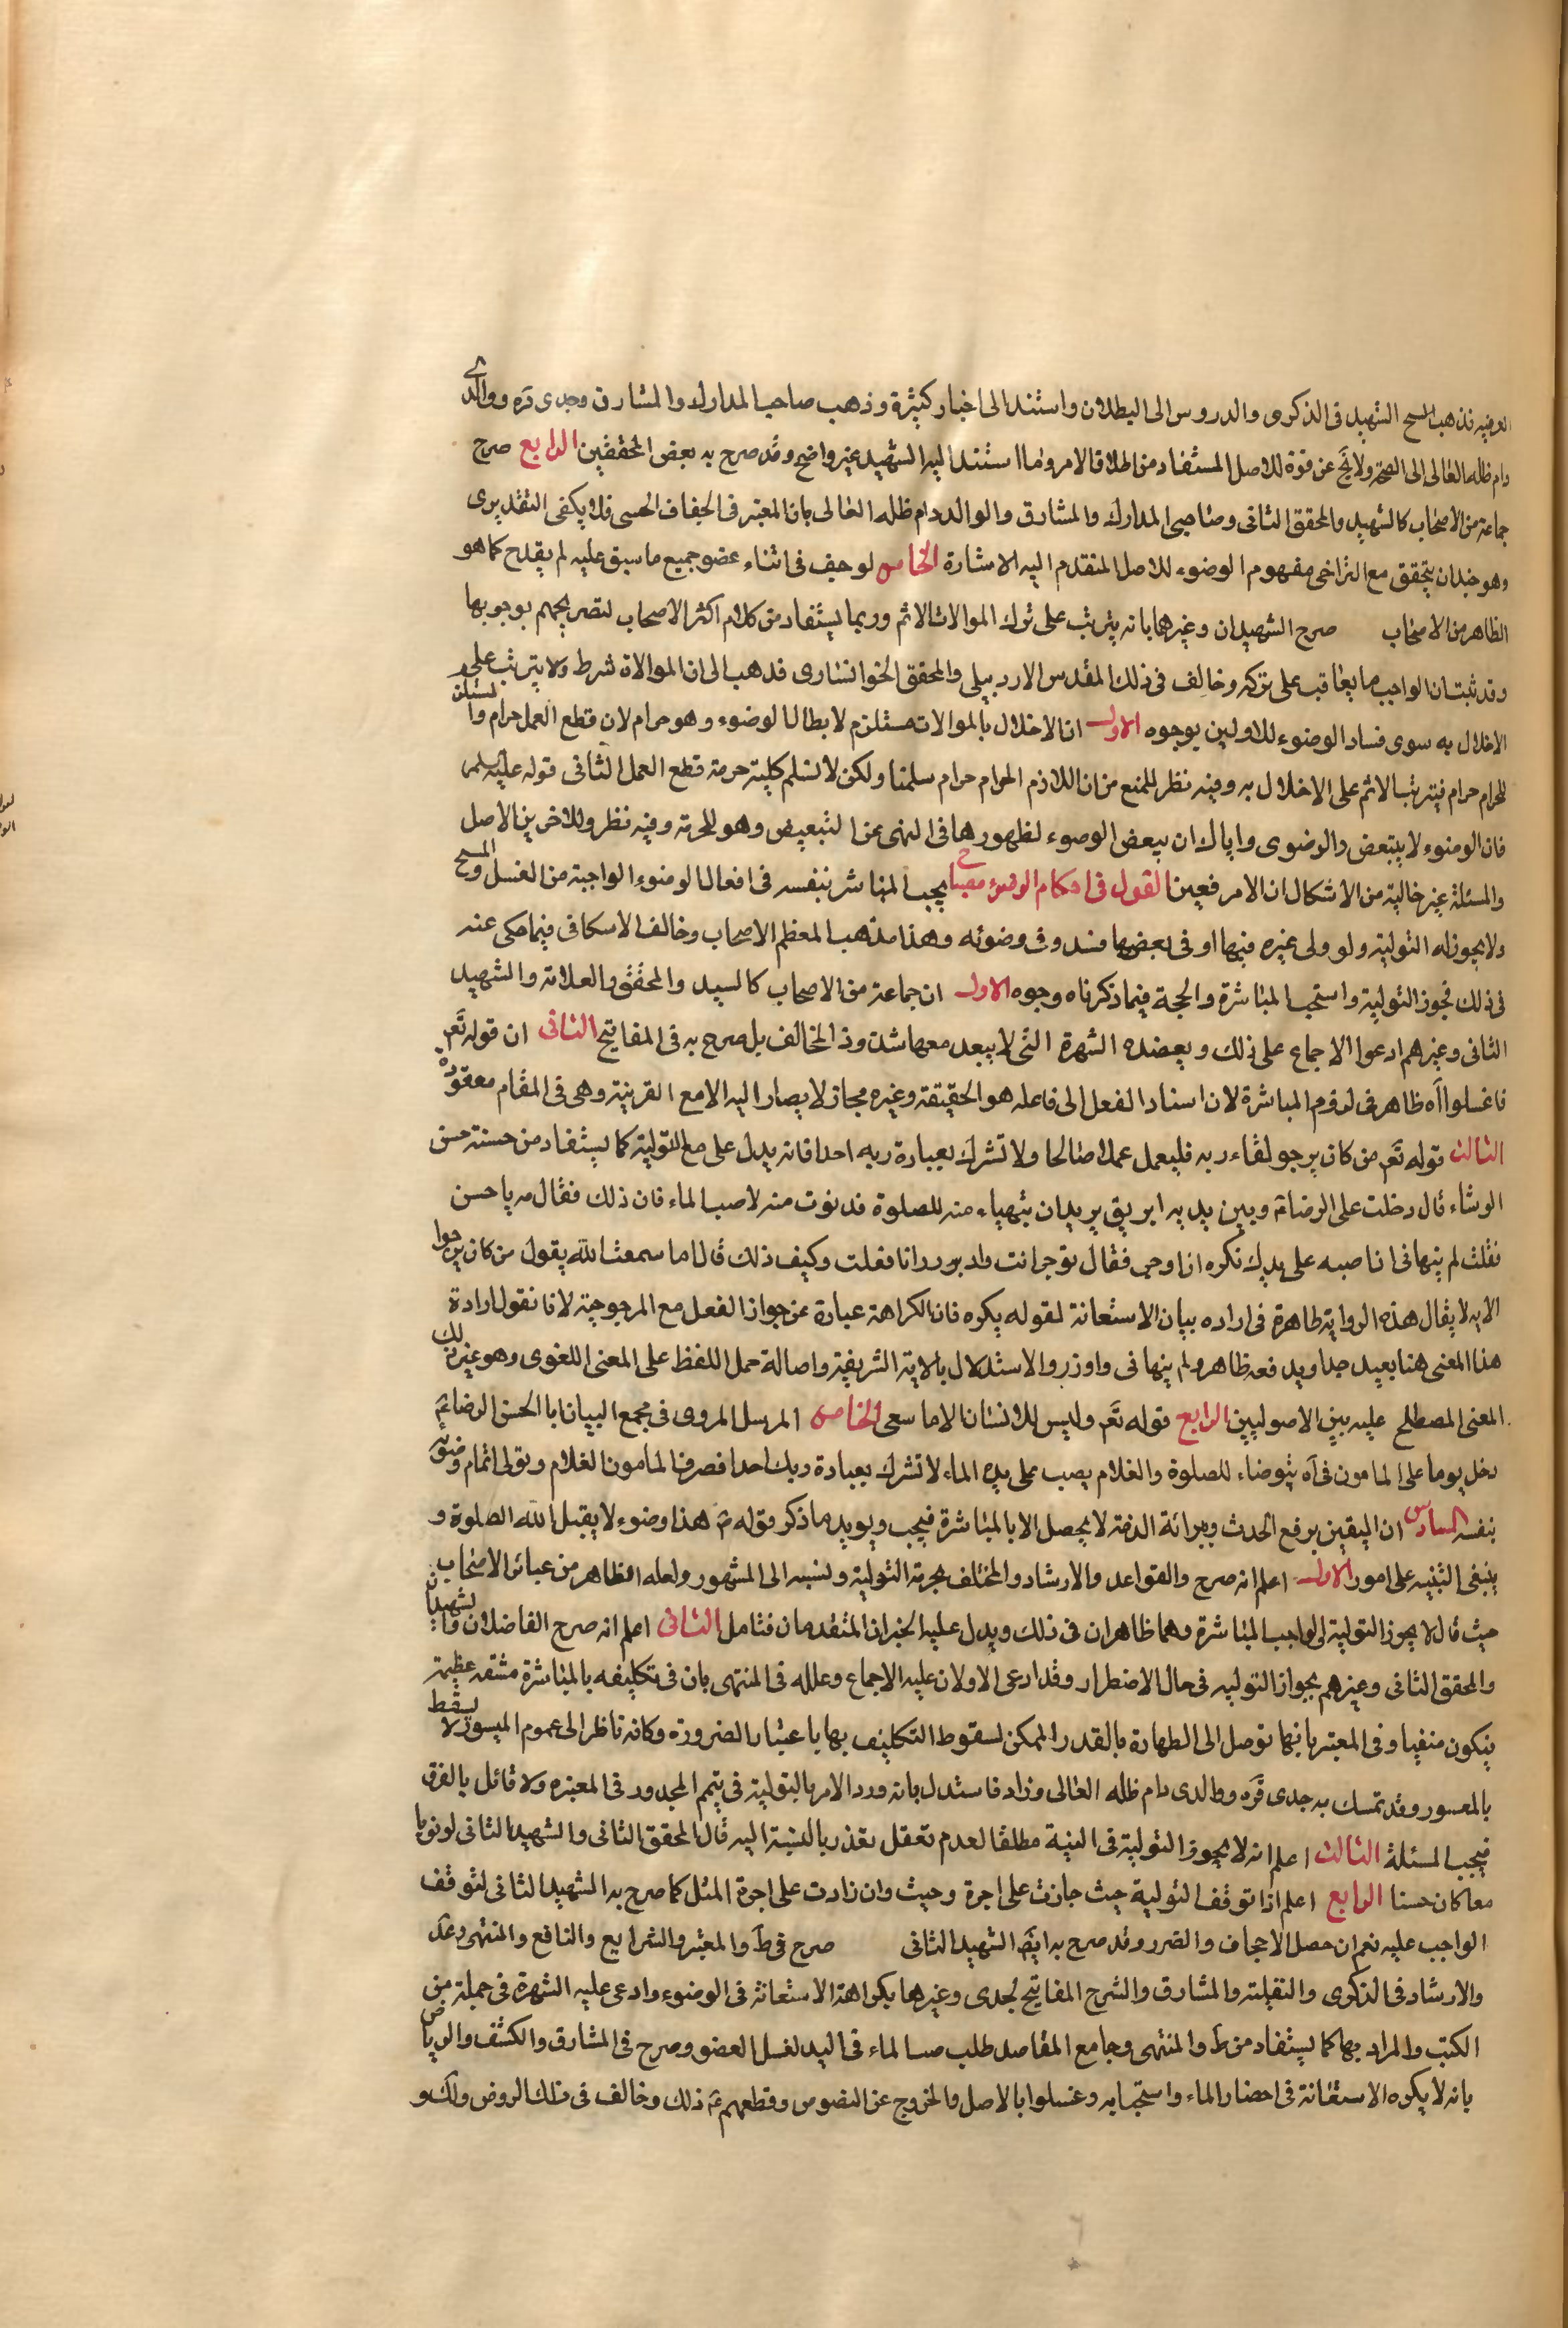 العرفيه فذهب الشيخ الشهيد فى الذكرى والدروس الى البطلان واستند الى اخبار كثيرة وذهب صاحبا المدارك والمشارق وجدى قره ووالدى
دام ظله العالى الى الصحة ولا يخ عن قوة للاصل المستفاد من اطلاقا الامر وما استند اليه الشهيد غير واضح وقد صرح به بعض المحققين الرابع صرح
جماعة من الاصحاب كالشهيد والمحقق الثانى وصاحبى المدارك والمشارق والوالد دام ظله العالى بان المعتبر فى الجفاف الحسى فلا يكفى التقديرى
وهو جيد ان يتحقق مع التراخى مفهوم الوضوء للاصل المتقدم اليه الاشارة الخامس لو جف فى اثناء عضو جميع ما سبق عليه لم يقدح كما هو
الظاهر من الاصحاب صرح الشهيدان وغيرهما بانه يترتب على ترك الموالات الاثم وربما يستفاد من كلام اكثر الاصحاب لتصريحهم بوجوبها
وقد ثبت ان الواجب ما يعاقب على تركه وخالف فى ذلك المقدس الاردبيلى والمحقق الخوانسارى فذهب الى ان الموالاة شرط ولا يترتب على
الاخلال به سوى فساد الوضوء للاولين بوجوه الاول ان الاخلال بالموالات مستلزم لابطال الوضوء وهو حرام لان قطع العمل حرام والمستلزم
للحرام حرام فيترتب الاثم على الاخلال به وفيه نظر للمنع من ان اللازم الحرام حرام سلمنا ولكن لا نسلم كلية حرمة قطع العمل الثانى قوله عليه السلم
فان الوضوء لا يتبعض والرضوى واياك ان يبعض الوضوء لظهورها فى النهى عن التبعيض وهو للحرمة وفيه نظر وللاخرين الاصل
والمسئلة غير خالية من الاشكال ان الامر فعين القول فى احكام الوضوء مصباح يجب المباشر بنفسه فى افعال الوضوء الواجبة من الغسل والمسح
ولا يجوز له التولية ولو ولى غيره فيها او فى بعضها فسد وضوئه وهذا مذهب المعظم الاصحاب وخالف الاسكافى فيما حكى عنه
فى ذلك فجوز التولية واستحب المباشرة والحجة فيما ذكرناه وجوه الاول ان جماعة من الاصحاب كالسيد والمحقق والعلامة والشهيد
الثانى وغيرهم ادعوا الاجماع على ذلك ويعضده الشهرة التى لا يبعد معها شذوذ المخالف بل صرح به فى المفاتيح الثانى ان قوله تعَ
فاغسلوا آه ظاهر فى لزوم المباشرة لان اسناد الفعل الى فاعله هو الحقيقة وغيره مجاز لا يصار اليه الا مع القرينة وهى فى المقام مفقودة
الثالث قوله تعَ من كان يرجو لقاء ربه فليعمل عملا صالحا ولا تشرك بعبادة ربه احدا فانه يدل على منع التولية كما يستفاد من حسنة حسن
الوشاء قال دخلت على الرضاعَ وبين يديه ابريق يريد ان يتهياء منه للصلوة فدنوت منه لاصب الماء فان ذلك فقال مه يا حسن
فقلت لم ينهانى ان اصبه على يديك تكره ان اوجر فقال توجر انت واوزر انا فقلت وكيف ذلك قال اما سمعت الله يقول من كان يرجوا
الايه لا يقال هذه الرواية ظاهرة فى اراده بيان الاستعانة لقوله يكره فان الكراهة عبارة عن جواز الفعل مع المرجوحية لانا نقول ارادة
هذا المعنى هنا بعيد جدا ويدفعه ظاهر ولم ينهانى واوزر والاستدلال بالاية الشريفة واصالة حمل اللفظ على المعنى اللغوى وهو غير ذلك
المعنى المصطلح عليه بين الاصوليين الرابع قوله تعَ وليس للانسان الا ما سعى الخامس المرسل المروى فى مجمع البيان ابا الحسن الرضاعَ
دخل يوما على المامون فرآه يتوضاء للصلوة والغلام يصب على يده الماء لا تشرك بعبادة ربك احدا فصرف المامون الغلام وتولى اتمام وضوئه
بنفسه السادس ان اليقين برفع الحدث وبرائة الذمة لا يحصل الا بالمباشرة فيجب ويويد ما ذكر قوله مَ هذا وضوء لا يقبل الله الصلوة و
ينبغى التنبيه على امور الاول اعلم انه صرح والقواعد والارشاد والمختلف بحرمة التولية ونسبه الى المشهور ولعله الظاهر من عبائر الاصحاب
حيث قال لا يجوز التولية الى الواجب المباشرة وهما ظاهران فى ذلك ويدل عليه الخبران المتقدمان فتامل الثانى اعلم انه صرح الفاضلان والشهيدان
والمحقق الثانى وغيرهم بجواز التوليه فى حال الاضطرار وقد ادعى الاولان عليه الاجماع وعلله فى المنتهى بان فى تكليفه بالمباشرة مشقه عظيمة
فيكون منفيا وفى المعتبر بانهما توصل الى الطهارة بالقدر الممكن لسقوط التكليف بها باعتبار الضرورة وكانه ناظر الى عموم الميسور لا يسقط
بالمعسور وقد تمسك به جدى قره ووالدى دام ظله العالى وزاد فاستدل بانه ورد الامر بالتولية فى تيمم المجدور فى المعتبره ولا قائل بالفرق
فيجب المسئلة الثالث اعلم انه لا يجوز التولية فى النية مطلقا لعدم تعقل تعذر بالنسبة اليه قال المحقق الثانى والشهيد الثانى لو نويا
معا كان حسنا الرابع اعلم اذا توقف التولية حيث جازت على اجرة وحيث وان زادت على اجرة المثل كما صرح به الشهيد الثانى لتوقف
الواجب عليه نعم ان حصل الاجحاف والضرر وقد صرح به ايضَ الشهيد الثانى صرح فى طَ والمعتبر والشرايع والنافع والمنتهى وعدَ
والارشاد فى الذكرى والنفلية والمشارق والشرح المفاتيح لجدى وغيرها بكراهة الاستعانة فى الوضوء وادعى عليه الشهرة فى جملة من
الكتب والمراد بها كما يستفاد من طَ والمنتهى وجامع المقاصد طلب صب الماء فى اليد لغسل العضو وصرح فى المشارق والكشف والرياض
بانه لا يكره الاستعانة فى احضار الماء واستحبابه وغسلوا بالاصل والخروج عن النصوص وقطعهم عَ ذلك وخالف فى ذلك الروض